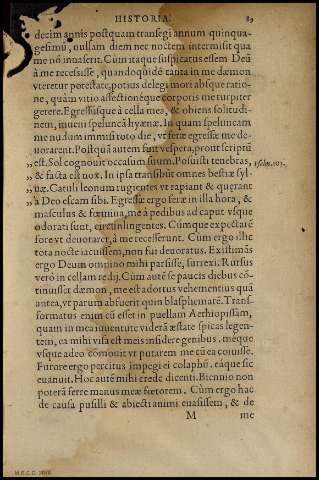 HISTORIA. 89
decim annis postquam transegi annum quinqua-
gesimū, nullam diem nec noctem intermisit qua
me nō inuaserit. Cùm itaque suspicatus essem Deū
à me recessisse, quandoquidē tanta in me dæmon
vteretur potestate, potius delegi mori absque ratio-
ne, quàm vitio affectionéque corporis me turpiter
gerere. Egressúsque à cella mea, & obiens solitudi-
nem, inueni speluncā hyænæ. In quam speluncam
me nudum immisi toto die, vt feræ egressæ me de-
uorarent. Postquā autem fuit vespera, prout scriptū
„ est. Sol cognouit occasum suum. Posuisti tenebras, Psalm. 103.
„ & facta est nox. In ipsa transibūt omnes bestiæ syl-
„ uæ. Catuli leonum rugientes vt rapiant & quærant
„ à Deo escam sibi. Egressæ ergo feræ in illa hora, &
masculus & fœmina, me à pedibus ad caput vsque
odorati sunt, circunlingentes. Cúmque expectarē
fore vt deuorarer, à me recesserunt. Cùm ergo illic
tota nocte iacuissem, non fui deuoratus. Existimās
ergo Deum omnino mihi parsisse, surrexi. Rursus
verò in cellam redij. Cùm autē se paucis diebus cō-
tinuisset dæmon, me est adortus vehementius quā
antea, vt parum abfuerit quin blasphemarē. Trans-
formatus enim cū esset in puellam Aethiopissam,
quam in mea iuuentute viderā æstate spicas legen-
tem, ea mihi visa est meis insidere genibus. méque
vsque adeo cōmouit vt putarem me cū ea coiuisse.
Furore ergo percitus impegi ei colaphū. eáque sic
euanuit. Hoc autē mihi crede dicenti. Biennio non
poterā ferre manus meæ fœtorem. Cùm ergo hac
de causa pusilli & abiecti animi euasissem, & de
M me